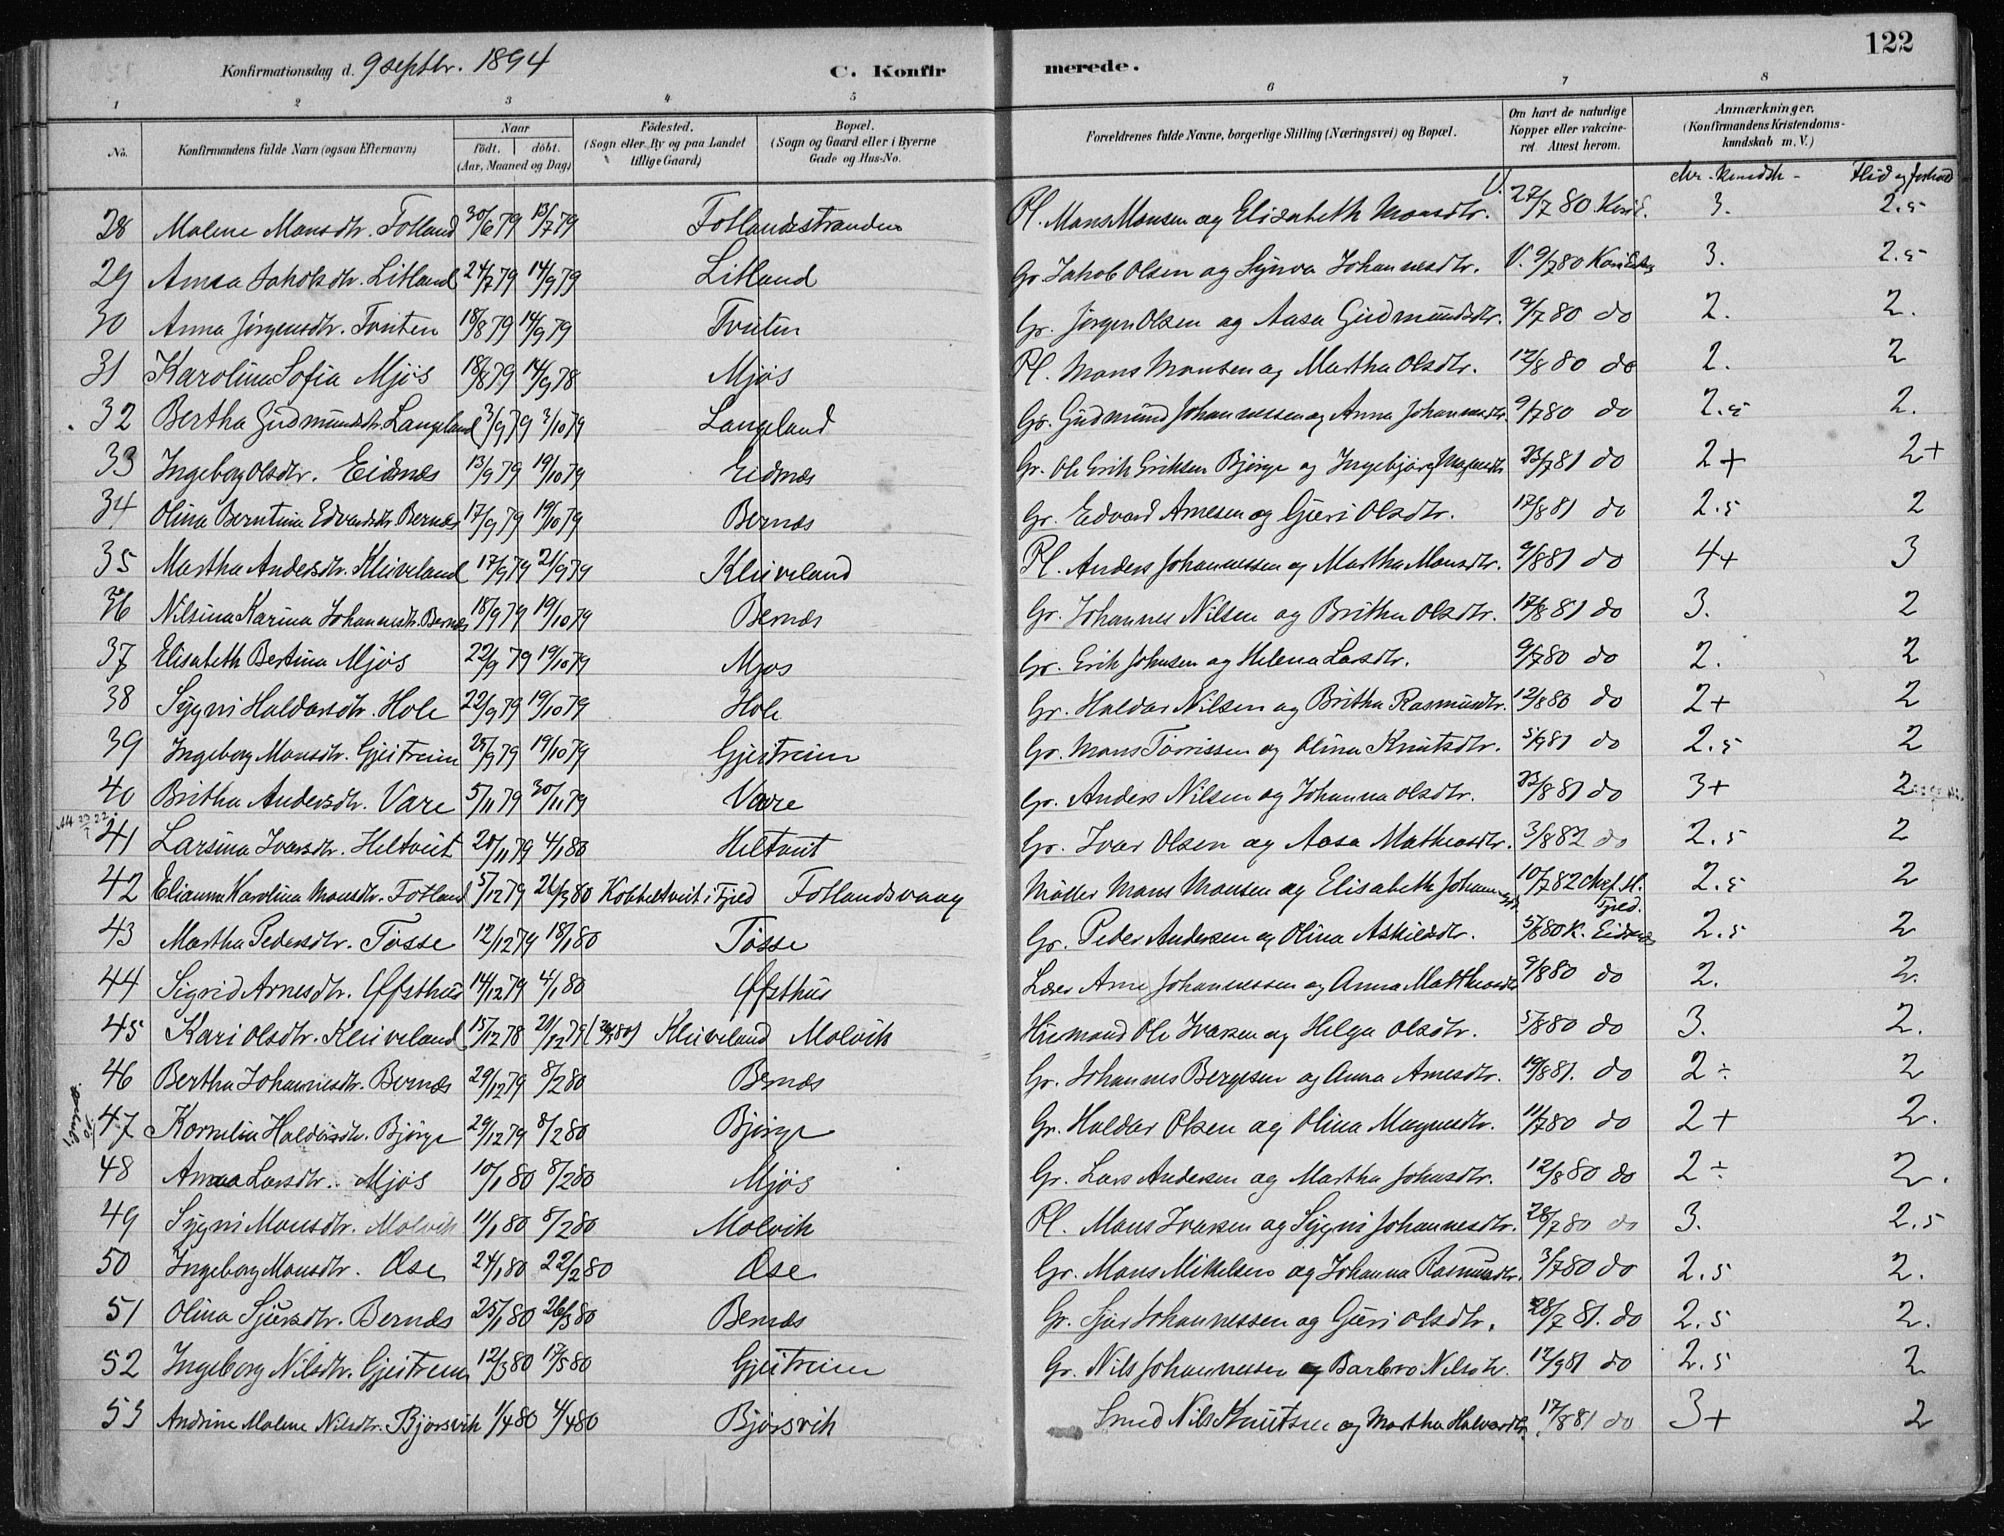 122
Konfirmationsdag d. 9 septbr. 1894 C. Konfirmerede.
1 2 3 4 5 6 7 8
No. Konfirmandens fulde Navn (ogsaa Efternavn) Naar født. døbt. (Aar, Maaned og Dag) Fødested. (Sogn eller By og paa Landet tillige Gaard) Bopæl. (Sogn og Gaard eller i Byerne Gade og Hus-No. Forældrenes fulde Navne, borgerlige Stilling (Næringsvei) og Bopæl. Om havt de naturlige Kopper eller vakcineret. Attest herom. Anmærkninger. (Konfirmandens Kristendomskundskab m. V.)
chr. kundsk - Flid og forhold
28 Malene Monsdtr. Fotland 30/6 79 13/7 79 Fotlandsstranden Pl. Mons Monsen og Elisabeth Monsdtr. V. 27/7 80 3. 2.5
29 Anna Jakobsdtr. Litland 24/7 79 14/9 79 Litland Gr. Jakob Olsen og Synva Johannesdtr. V. 9/7 80 3. 2.5
30 Anna Jørgensdtr. Tveiten 18/8 79 14/9 79 Tveiten Gr. Jørgen Olsen og Aasa Gudmundsdtr. 9/7 80 do 2. 2.
31 Karolina Sofia Mjøs 18/8 79 14/9 78 Mjøs Pl. Mons Monsen og Martha Olsdtr. 12/8 80 do 2. 2
32 Bertha Gudmundsdtr. Langeland 3/9 79 3/10 79 Langeland Gr. Gudmund Johannessen og Anna Johannesdtr. 9/7 80 do 2.5 2.
33 Ingeborg Olsdtr. Eidsnes 13/9 79 19/10 79 Eidsnes Gr. Ole Erik Eriksen Bjørge og Ingebjørg Magnesdtr. 23/7 81 do 2+ 2+
34 Olina Berntina Edvardsdtr. Bernæs 17/9 79 19/10 79 Bernæs Gr. Edvard Arnesen og Guri Olsdtr. 17/8 81 do 2.5 2
35 Martha Andersdtr. Kleiveland 17/9 79 21/9 79 Kleiveland Pl. Anders Johannessen og Martha Monsdtr. 9/8 81 do 4+ 3
36 Nilsina Karina Johannesdtr. Bernæs 18/9 79 19/10 79 Bernæs Gr. Johannes Nilsen og Britha Olsdtr. 17/8 81 do 3. 2
37 Elisabeth Bertina Mjøs 22/9 79 19/10 79 Mjøs Gr. Erik Johnsen og Helena Larsdtr. 9/7 80 do 2. 2
38 Sygni Haldorsdtr. Hole 22/9 79 19/10 79 Hole Gr. Haldor Nilsen og Britha Rasmusdtr. 12/8 80 do 2+ 2
39 Ingeborg Monsdtr. Gjeitreim 25/9 79 19/10 79 Gjeitreim Gr. Mons Torrissen og Olina Knutsdtr. 5/9 81 do 2.5 2
40 Britha Andersdtr. Vare 5/11 79 30/11 79 Vare Gr. Anders Nilsen og Johanna Olsdtr. 23/8 81 do 3+ 2
41 Larsina Ivarsdtr. Heltveit 20/11 79 4/1 80 Heltveit Gr. Ivar Olsen og Aasa Matheasdtr. 3/8 82 do 2.5 2
42 Elianna Karolina Monsdtr. Fotland 5/12 79 26/3 80 Kobbeltveit i Fjeld Fotlandsvaag Møller Mons Monsen og Elisabeth Johannesdtr. 10/7 82 Fjeld. 2.5 2
43 Martha Pedersdtr. Tøsse 12/12 79 18/1 80 Tøsse Gr. Peder Andersen og Olina Askildsdtr. 5/8 80 K. Eidsnes 2.5 2
44 Sigrid Arnesdtr. Øfsthus 14/12 79 4/1 80 Øfsthus Lærer Arne Johannessen og Anna Matheasdtr. 9/8 80 do 2. 2.
45 Kari Olsdtr. Kleiveland 15/12 78 Kleiveland Molvik Husmand Ole Ivarsen og Helga Olsdtr. 5/8 80 do 3. 2.
46 Bertha Johannesdtr. Bernæs 29/12 79 8/2 80 Bernæs Gr. Johannes Bergesen og Anna Arnesdtr. 19/8 81. do 2÷ 2
47 Kornelia Haldorsdtr. Bjørge 29/12 79 8/2 80 Bjørge Gr. Haldor Olsen og Olina Magnesdtr. 11/7 80 do 2+ 2.
48 Anna Larsdtr. Mjøs 10/1 80 8/2 80 Mjøs Gr. Lars Andersen og Martha Johnsdtr. 12/8 80 do 2÷ 2.
49 Sygni Monsdtr. Molvik 11/1 80 8/2 80 Molvik Pl. Mons Ivarsen og Sygni Johannesdtr. 28/7 80 do 3. 2.5
50 Ingeborg Monsdtr. Øse 24/1 80 22/2 80 Øse Gr. Mons Mikelsen og Johanna Rasmusdtr. 3/7 80 do 2.5 2.
51 Olina Sjursdtr. Bernæs 25/1 80 26/3 80 Bernæs Gr. Sjur Johannessen og Guri Olsdtr. 28/7 81. do 2.5 2.
52 Ingeborg Nilsdtr. Gjeitreim 12/3 80 17/5 80 Gjeitreim Gr. Nils Johannessen og Barbro Nilsdtr. 12/9 81 do 2.5 2
53 Andrine Malene Nilsdtr. Bjørsvik 1/4 80 4/4 80 Bjørsvik Smed Nils Knutsen og Martha Halvordtr. 17/8 81 do 3+ 2